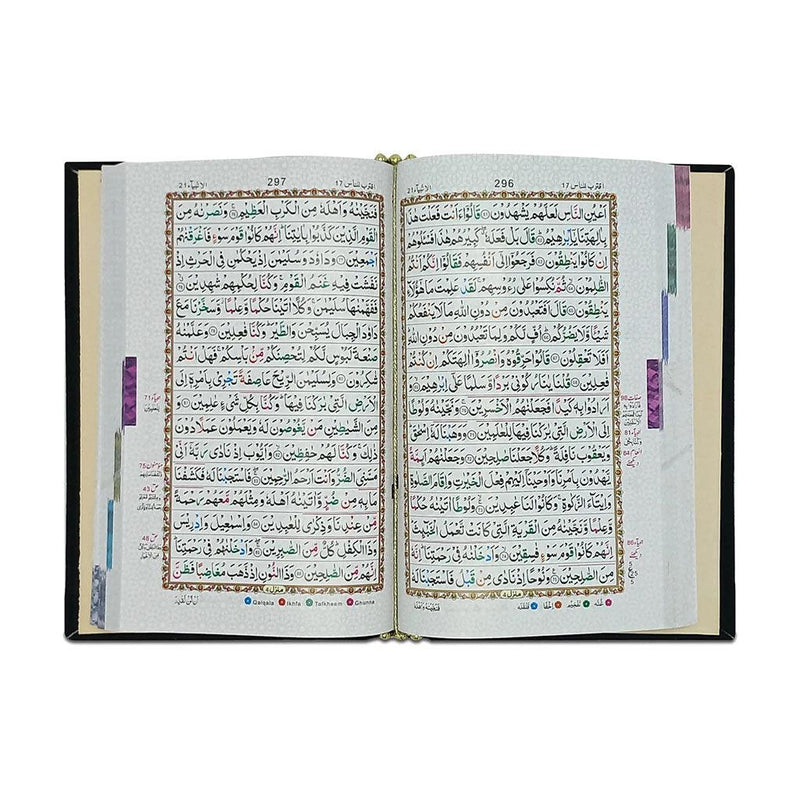 اقترب للناس 17 296 الانبیآء 21
اَعْيُنِ النَّاسِ لَعَلَّهُمْ يَشْهَدُوْنَ ۝ قَالُوْٓا ءَاَنْتَ فَعَلْتَ هٰذَا
بِاٰلِهَتِنَا يٰٓاِبْرٰهِيْمُ ۝ قَالَ بَلْ فَعَلَهٗ كَبِيْرُهُمْ هٰذَا فَسْـَٔلُوْهُمْ
اِنْ كَانُوْا يَنْطِقُوْنَ ۝ فَرَجَعُوْٓا اِلٰٓى اَنْفُسِهِمْ فَقَالُوْٓا اِنَّكُمْ اَنْتُمُ
الظّٰلِمُوْنَ ۝ ثُمَّ نُكِسُوْا عَلٰى رُءُوْسِهِمْ لَقَدْ عَلِمْتَ مَا هٰٓؤُلَآءِ
يَنْطِقُوْنَ ۝ قَالَ اَفَتَعْبُدُوْنَ مِنْ دُوْنِ اللّٰهِ مَا لَا يَنْفَعُكُمْ
شَيْـًٔا وَّلَا يَضُرُّكُمْ ۝ اُفٍّ لَّكُمْ وَلِمَا تَعْبُدُوْنَ مِنْ دُوْنِ اللّٰهِ
اَفَلَا تَعْقِلُوْنَ ۝ قَالُوْا حَرِّقُوْهُ وَانْصُرُوْٓا اٰلِهَتَكُمْ اِنْ كُنْتُمْ
فٰعِلِيْنَ ۝ قُلْنَا يٰنَارُ كُوْنِيْ بَرْدًا وَّسَلٰمًا عَلٰٓى اِبْرٰهِيْمَ ۝ وَ
اَرَادُوْا بِهٖ كَيْدًا فَجَعَلْنٰهُمُ الْاَخْسَرِيْنَ ۝ وَنَجَّيْنٰهُ وَلُوْطًا
اِلَى الْاَرْضِ الَّتِيْ بٰرَكْنَا فِيْهَا لِلْعٰلَمِيْنَ ۝ وَوَهَبْنَا لَهٗٓ اِسْحٰقَ
وَيَعْقُوْبَ نَافِلَةً وَكُلًّا جَعَلْنَا صٰلِحِيْنَ ۝ وَجَعَلْنٰهُمْ اَئِمَّةً
يَّهْدُوْنَ بِاَمْرِنَا وَاَوْحَيْنَآ اِلَيْهِمْ فِعْلَ الْخَيْرٰتِ وَاِقَامَ الصَّلٰوةِ
وَاِيْتَآءَ الزَّكٰوةِ وَكَانُوْا لَنَا عٰبِدِيْنَ ۝ وَلُوْطًا اٰتَيْنٰهُ حُكْمًا
وَّعِلْمًا وَّنَجَّيْنٰهُ مِنَ الْقَرْيَةِ الَّتِيْ كَانَتْ تَّعْمَلُ الْخَبٰٓئِثَ
اِنَّهُمْ كَانُوْا قَوْمَ سَوْءٍ فٰسِقِيْنَ ۝ وَاَدْخَلْنٰهُ فِيْ رَحْمَتِنَا اِنَّهٗ
مِنَ الصّٰلِحِيْنَ ۝ وَنُوْحًا اِذْ نَادٰى مِنْ قَبْلُ فَاسْتَجَبْنَا لَهٗ
غنّه تفخیم اخفا قلقله
الانبیآء 21 297 اقترب للناس 17
فَنَجَّيْنٰهُ وَاَهْلَهٗ مِنَ الْكَرْبِ الْعَظِيْمِ ۝ وَنَصَرْنٰهُ مِنَ
الْقَوْمِ الَّذِيْنَ كَذَّبُوْا بِاٰيٰتِنَا اِنَّهُمْ كَانُوْا قَوْمَ سَوْءٍ فَاَغْرَقْنٰهُمْ
اَجْمَعِيْنَ ۝ وَدَاوٗدَ وَسُلَيْمٰنَ اِذْ يَحْكُمٰنِ فِي الْحَرْثِ اِذْ
نَفَشَتْ فِيْهِ غَنَمُ الْقَوْمِ وَكُنَّا لِحُكْمِهِمْ شٰهِدِيْنَ ۝
فَفَهَّمْنٰهَا سُلَيْمٰنَ وَكُلًّا اٰتَيْنَا حُكْمًا وَّعِلْمًا وَّسَخَّرْنَا مَعَ
دَاوٗدَ الْجِبَالَ يُسَبِّحْنَ وَالطَّيْرَ وَكُنَّا فٰعِلِيْنَ ۝ وَعَلَّمْنٰهُ
صَنْعَةَ لَبُوْسٍ لَّكُمْ لِتُحْصِنَكُمْ مِّنْ بَاْسِكُمْ فَهَلْ اَنْتُمْ
شٰكِرُوْنَ ۝ وَلِسُلَيْمٰنَ الرِّيْحَ عَاصِفَةً تَجْرِيْ بِاَمْرِهٖٓ اِلَى
الْاَرْضِ الَّتِيْ بٰرَكْنَا فِيْهَا وَكُنَّا بِكُلِّ شَيْءٍ عٰلِمِيْنَ ۝ وَ
مِنَ الشَّيٰطِيْنِ مَنْ يَّغُوْصُوْنَ لَهٗ وَيَعْمَلُوْنَ عَمَلًا دُوْنَ
ذٰلِكَ وَكُنَّا لَهُمْ حٰفِظِيْنَ ۝ وَاَيُّوْبَ اِذْ نَادٰى رَبَّهٗٓ اَنِّيْ
مَسَّنِيَ الضُّرُّ وَاَنْتَ اَرْحَمُ الرّٰحِمِيْنَ ۝ فَاسْتَجَبْنَا لَهٗ فَكَشَفْنَا
مَا بِهٖ مِنْ ضُرٍّ وَّاٰتَيْنٰهُ اَهْلَهٗ وَمِثْلَهُمْ مَّعَهُمْ رَحْمَةً
مِّنْ عِنْدِنَا وَذِكْرٰى لِلْعٰبِدِيْنَ ۝ وَاِسْمٰعِيْلَ وَاِدْرِيْسَ
وَذَا الْكِفْلِ كُلٌّ مِّنَ الصّٰبِرِيْنَ ۝ وَاَدْخَلْنٰهُمْ فِيْ رَحْمَتِنَا
اِنَّهُمْ مِّنَ الصّٰلِحِيْنَ ۝ وَذَا النُّوْنِ اِذْ ذَّهَبَ مُغَاضِبًا فَظَنَّ
Qalqala Ikhfa Tafkheem Ghunna